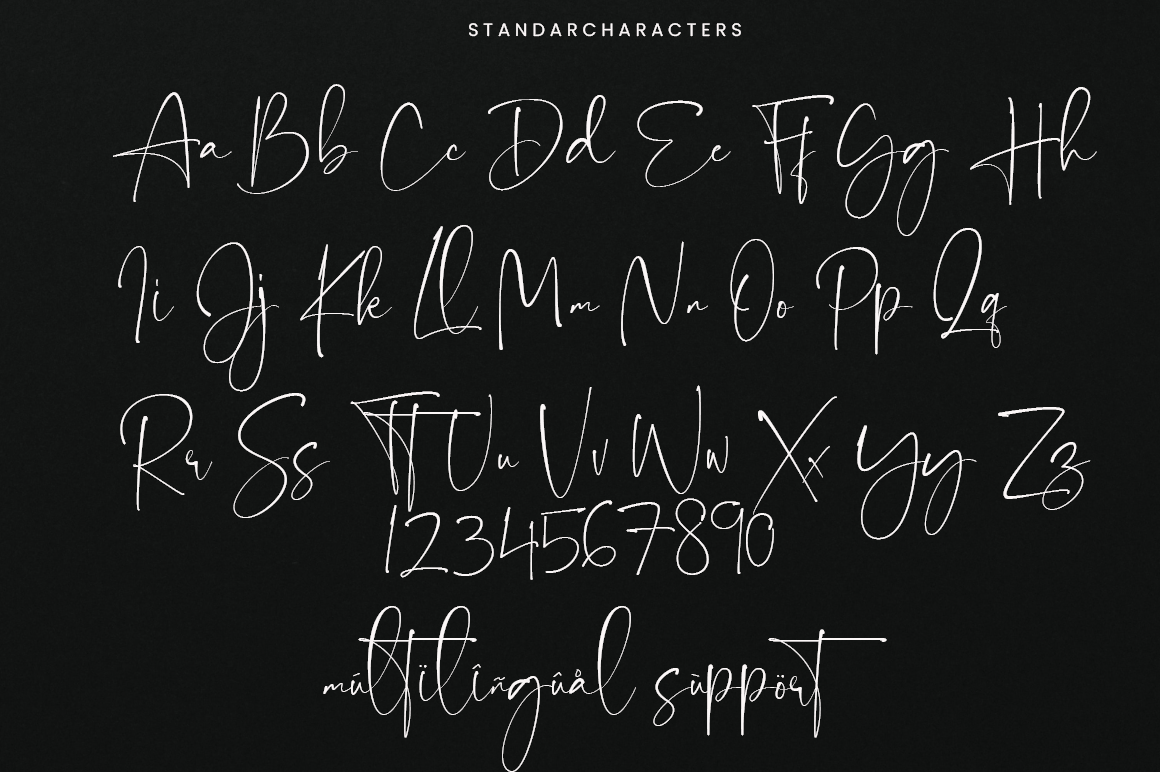 STANDARCHARACTERS
Aa Bb Cc Dd Ee Ff Gg Hh
Ii Jj Kk Ll Mm Nn Oo Pp Qq
Rr Ss Tt Uu Vv Ww Xx Yy Zz
1234567890
múltïlîñgûål sùppört